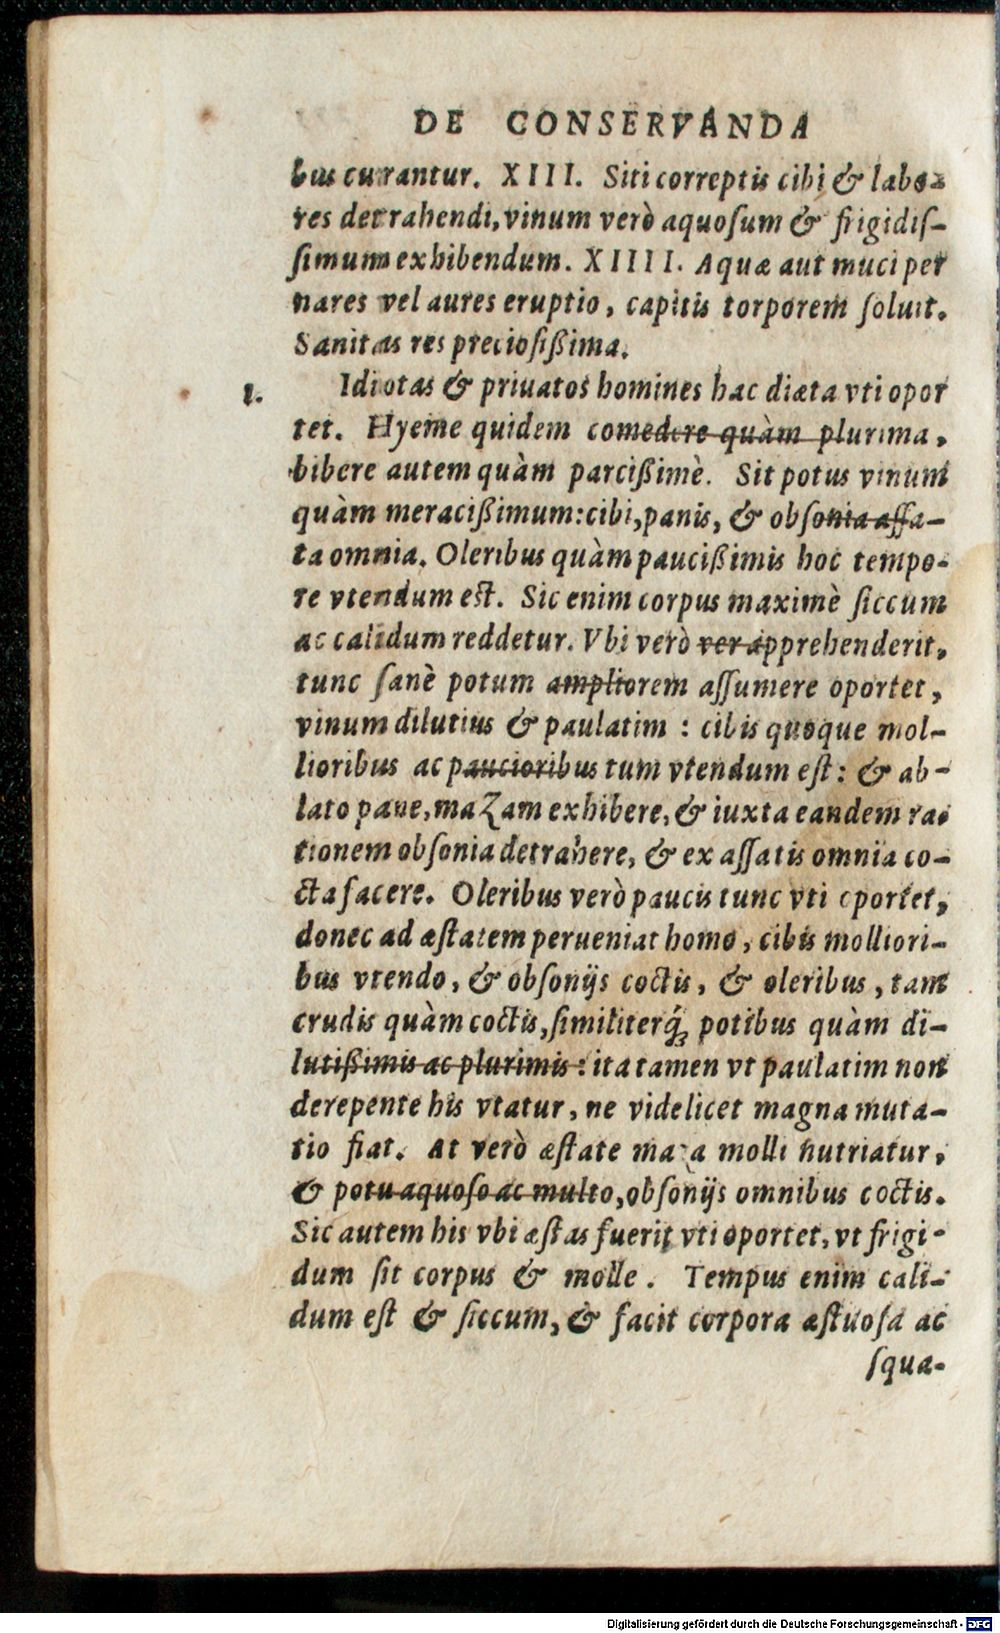 DE CONSERVANDA
bus curantur. XIII. Siti correptis cibi & labo-
res detrahendi, vinum verò aquosum & frigidis-
simum exhibendum. XIIII. Aquæ aut muci per
nares vel aures eruptio, capitis torporem soluit.
Sanitas res preciosißima.
I. Idiotas & priuatos homines hac diæta vti opor
tet. Hyeme quidem comedere quàm plurima,
bibere autem quàm parcißimè. Sit potus vinum
quàm meracißimum: cibi, panis, & obsonia assa-
ta omnia. Oleribus quàm paucißimis hoc tempo-
re vtendum est. Sic enim corpus maximè siccum
ac calidum reddetur. Vbi verò ver apprehenderit,
tunc sanè potum ampliorem assumere oportet,
vinum dilutius & paulatim : cibis quoque mol-
lioribus ac paucioribus tum vtendum est: & ab-
lato pane, mazam exhibere, & iuxta eandem ra-
tionem obsonia detrahere, & ex assatis omnia co-
cta facere. Oleribus verò paucis tunc vti oportet,
donec ad æstatem perueniat homo, cibis molliori-
bus vtendo, & obsonijs coctis, & oleribus, tam
crudis quàm coctis, similiterq́; potibus quàm di-
lutißimis ac plurimis : ita tamen vt paulatim non
derepente his vtatur, ne videlicet magna muta-
tio fiat. At verò æstate maza molli nutriatur,
& potu aquoso ac multo, obsonijs omnibus coctis.
Sic autem his vbi æstas fuerit vti oportet, vt frigi-
dum sit corpus & molle. Tempus enim cali-
dum est & siccum, & facit corpora æstuosa ac
squa-
Digitalisierung gefördert durch die Deutsche Forschungsgemeinschaft - DFG